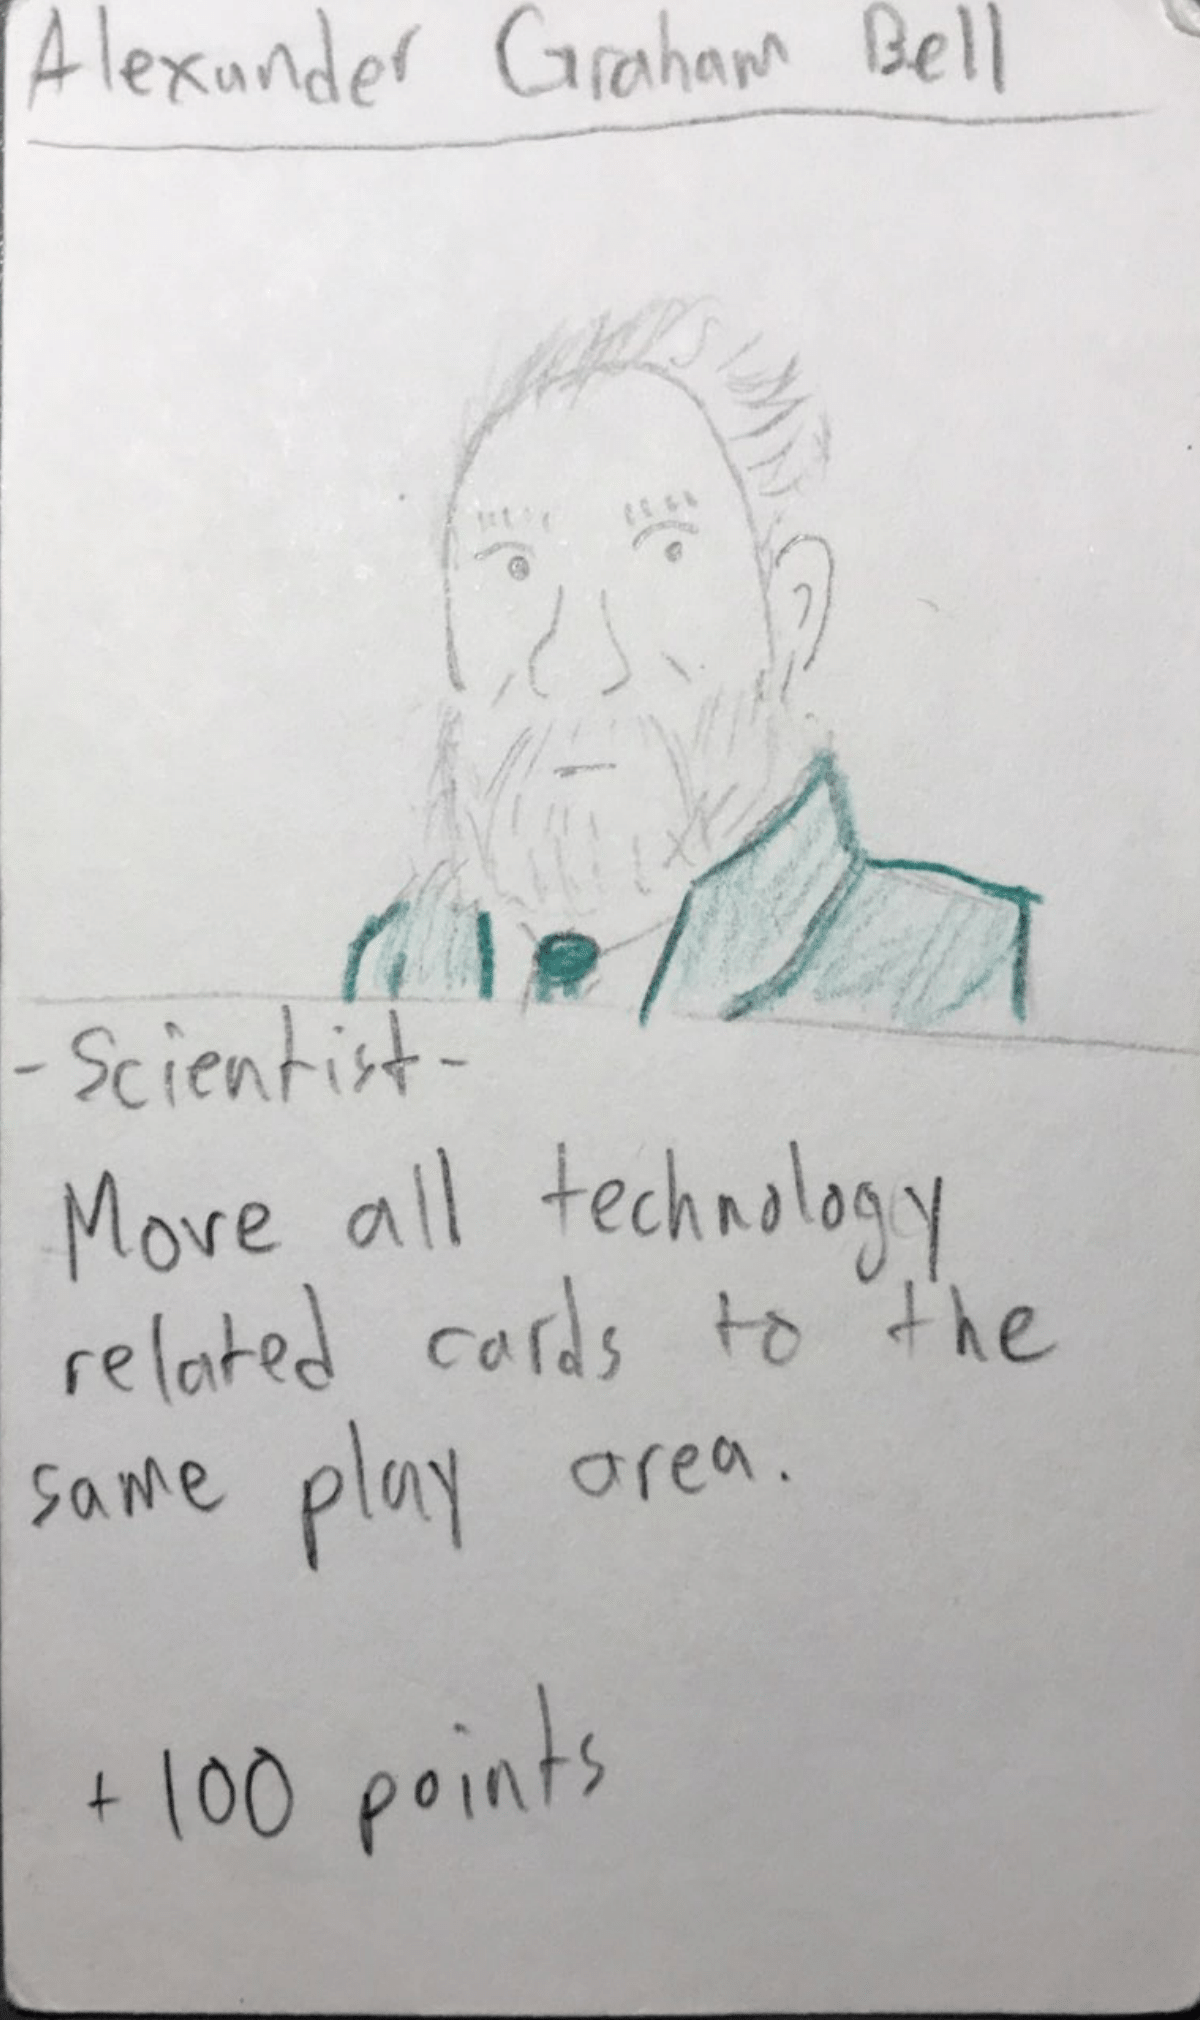 Alexander Graham Bell
-Scientist-
Move all technology
related cards to the
same play area.
+100 points